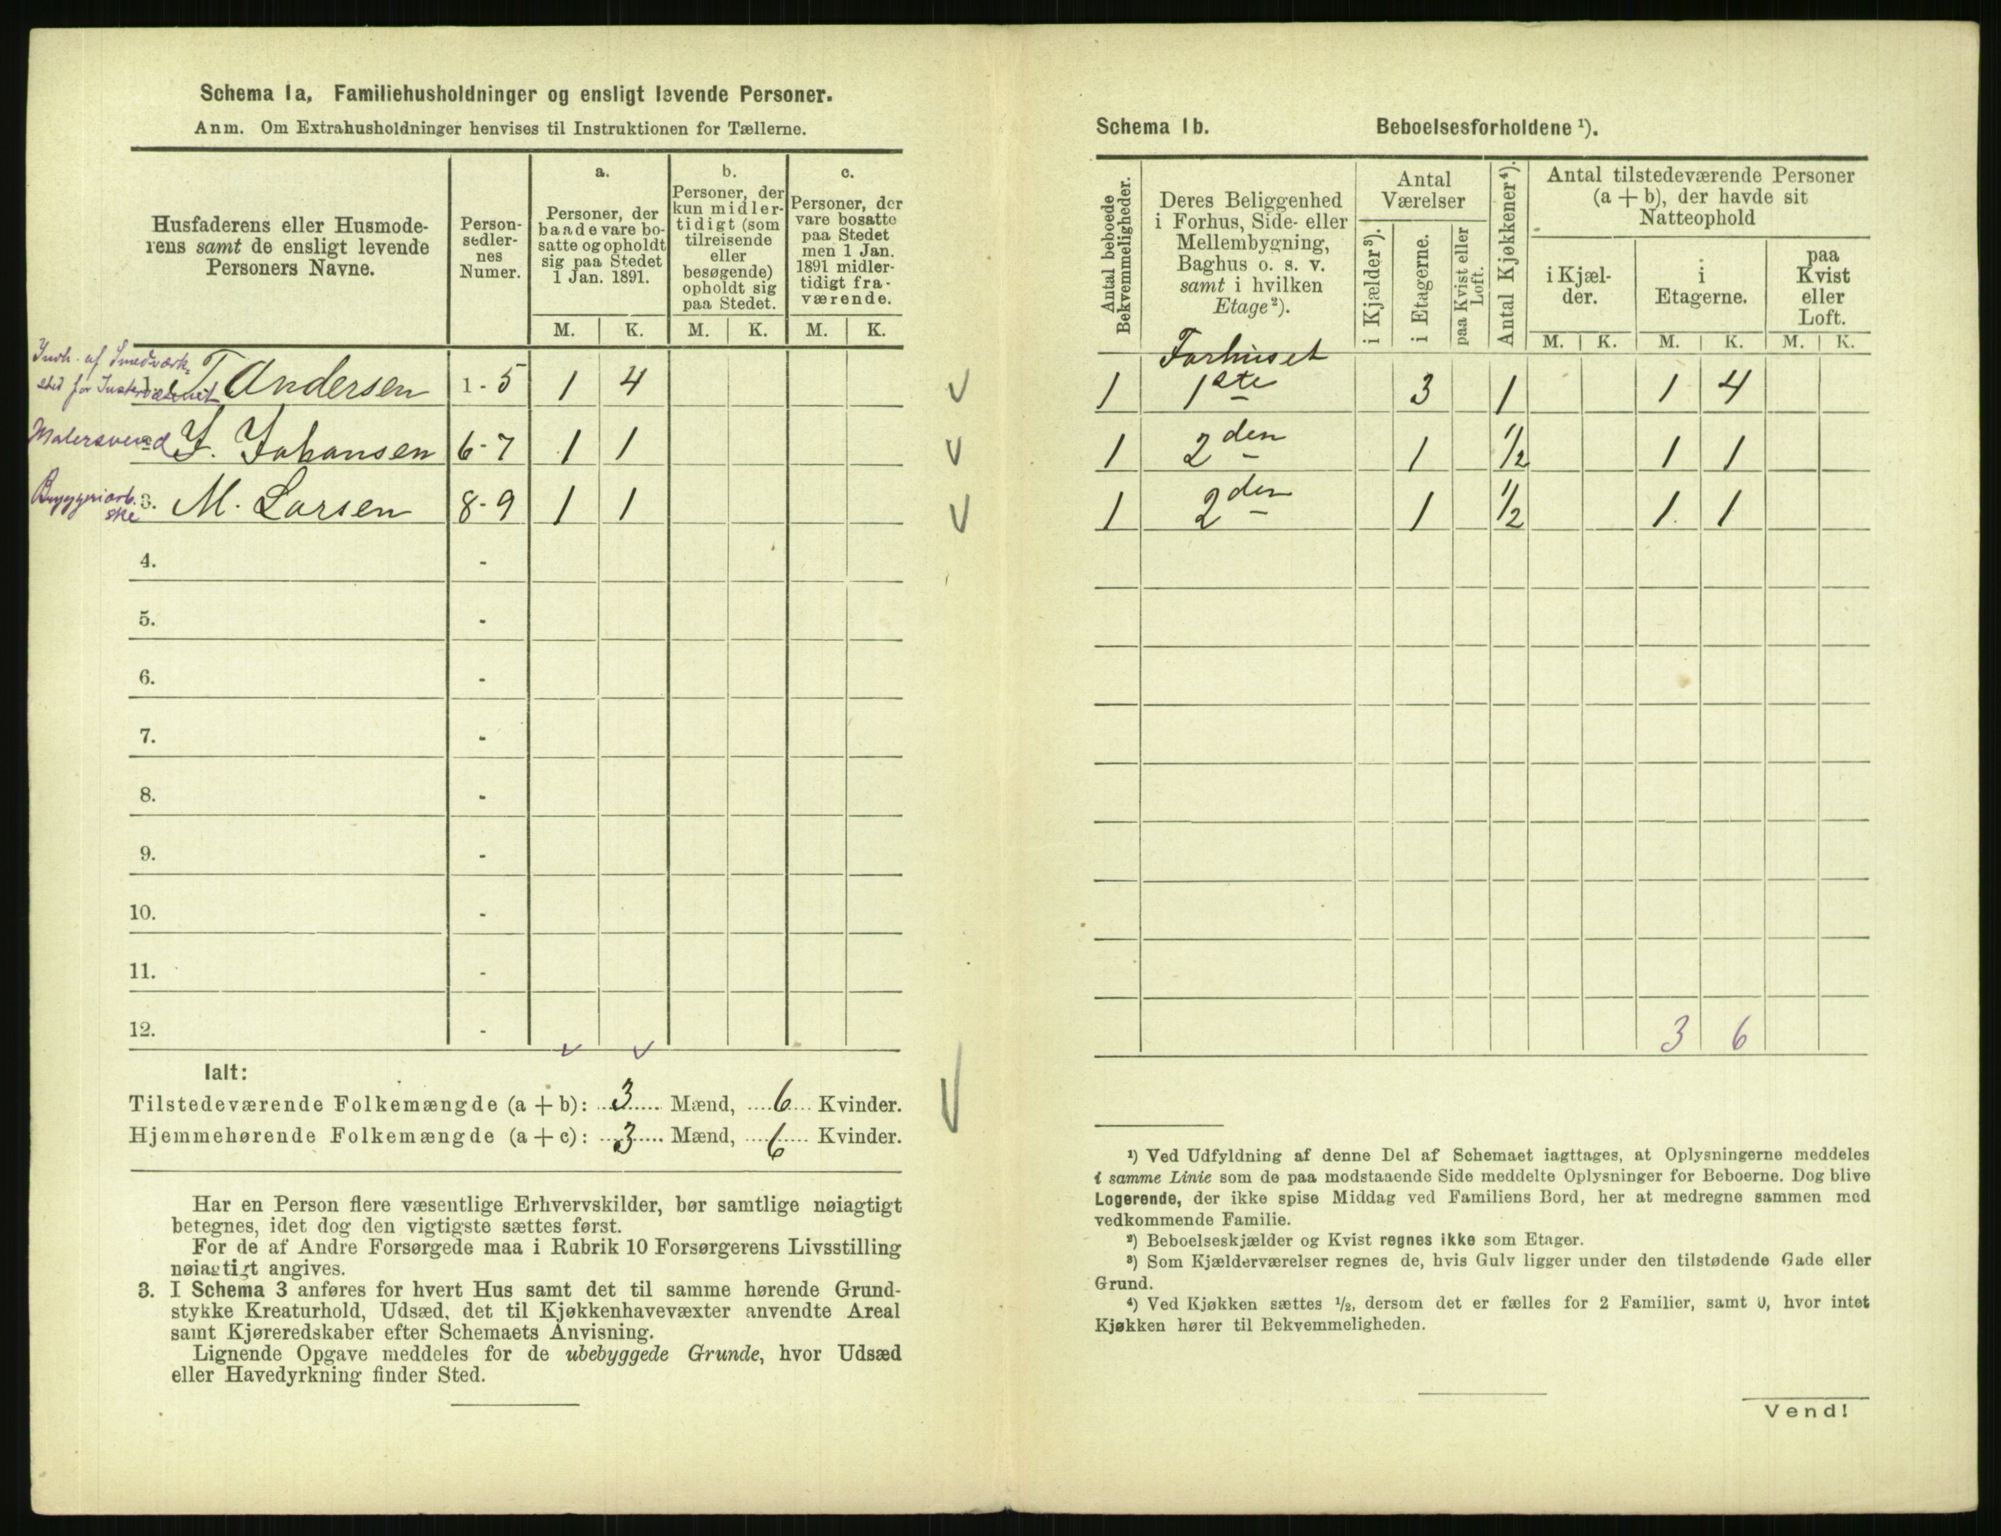 Schema 1a. Familiehusholdninger og ensligt levende Personer.
Anm. Om Extrahusholdninger henvises til Instruktionen for Tællerne.
Husfaderens eller Husmode-
rens samt de ensligt levende
Personers Navne.
Person-
sedler-
nes
Numer.
a.
Personer, der
baade vare bo-
satte og opholdt
sig paa Stedet
1 Jan. 1891.
b.
Personer, der
kun midler-
tidigt (som
tilreisende
eller
besøgende)
opholdt sig
paa Stedet.
c.
Personer, der
vare bosatte
paa Stedet
men 1 Jan.
1891 midler-
tidigt fra-
værende.
M. K. M. K. M. K.
Indh. af Smedværk-
sted for
T. Andersen 1-5 1 4
Malersvend J. Johansen 6-7 1 1
Bryggeriarb.
ske
3. M. Larsen 8-9 1 1
4. -
5. -
6. -
7. -
8. -
9. -
10. -
11. -
12. -
Ialt:
Tilstedeværende Folkemængde (a + b): 3 Mænd, 6 Kvinder.
Hjemmehørende Folkemængde (a + c): 3 Mænd, 6 Kvinder.
Har en Person flere væsentlige Erhvervskilder, bør samtlige nøiagtigt
betegnes, idet dog den vigtigste sættes først.
For de af Andre Forsørgede maa i Rubrik 10 Forsørgerens Livsstilling
nøiagtigt angives.
3. I Schema 3 anføres for hvert Hus samt det til samme hørende Grund-
stykke Kreaturhold, Udsæd, det til Kjøkkenhavevæxter anvendte Areal
samt Kjøreredskaber efter Schemaets Anvisning.
Lignende Opgave meddeles for de ubebyggede Grunde, hvor Udsæd
eller Havedyrkning finder Sted.
Schema 1b. Beboelsesforholdene ¹).
Antal beboede
Bekvemmeligheder.
Deres Beliggenhed
i Forhus, Side- eller
Mellembygning,
Baghus o. s. v.
samt i hvilken
Etage²).
Antal
Værelser
i Kjælder³).
i Etagerne.
paa Kvist eller
Loft.
Antal Kjøkkener⁴).
Antal tilstedeværende Personer
(a + b), der havde sit
Natteophold
i Kjæl-
der.
i
Etagerne.
paa
Kvist
eller
Loft.
M. K. M. K. M. K.
Forhuset
1 1ste 3 1 1 4
1 2den 1 1/2 1 1
1 2den 1 1/2 1 1
3 6
¹) Ved Udfyldning af denne Del af Schemaet iagttages, at Oplysningerne meddeles
i samme Linie som de paa modstaaende Side meddelte Oplysninger for Beboerne. Dog blive
Logerende, der ikke spise Middag ved Familiens Bord, her at medregne sammen med
vedkommende Familie.
²) Beboelseskjælder og Kvist regnes ikke som Etager.
³) Som Kjælderværelser regnes de, hvis Gulv ligger under den tilstødende Gade eller
Grund.
⁴) Ved Kjøkken sættes ½, dersom det er fælles for 2 Familier, samt 0, hvor intet
Kjøkken hører til Bekvemmeligheden.
Vend!